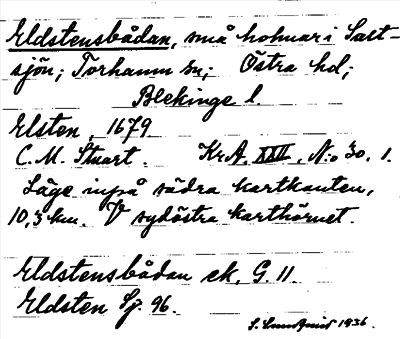 Eldstensbådan, små holmar i Salt-
sjön; Torhamn sn; Östra hd;
Blekinge l.
Elsten, 1679
C. M. Stuart. KrA. XXII, N:o 30. 1.
Läge inpå södra kartkanten,
10,3 km. V sydöstra karthörnet.
Eldstensbådan ek. G. 11.
Eldsten Sj. 96.
1936.